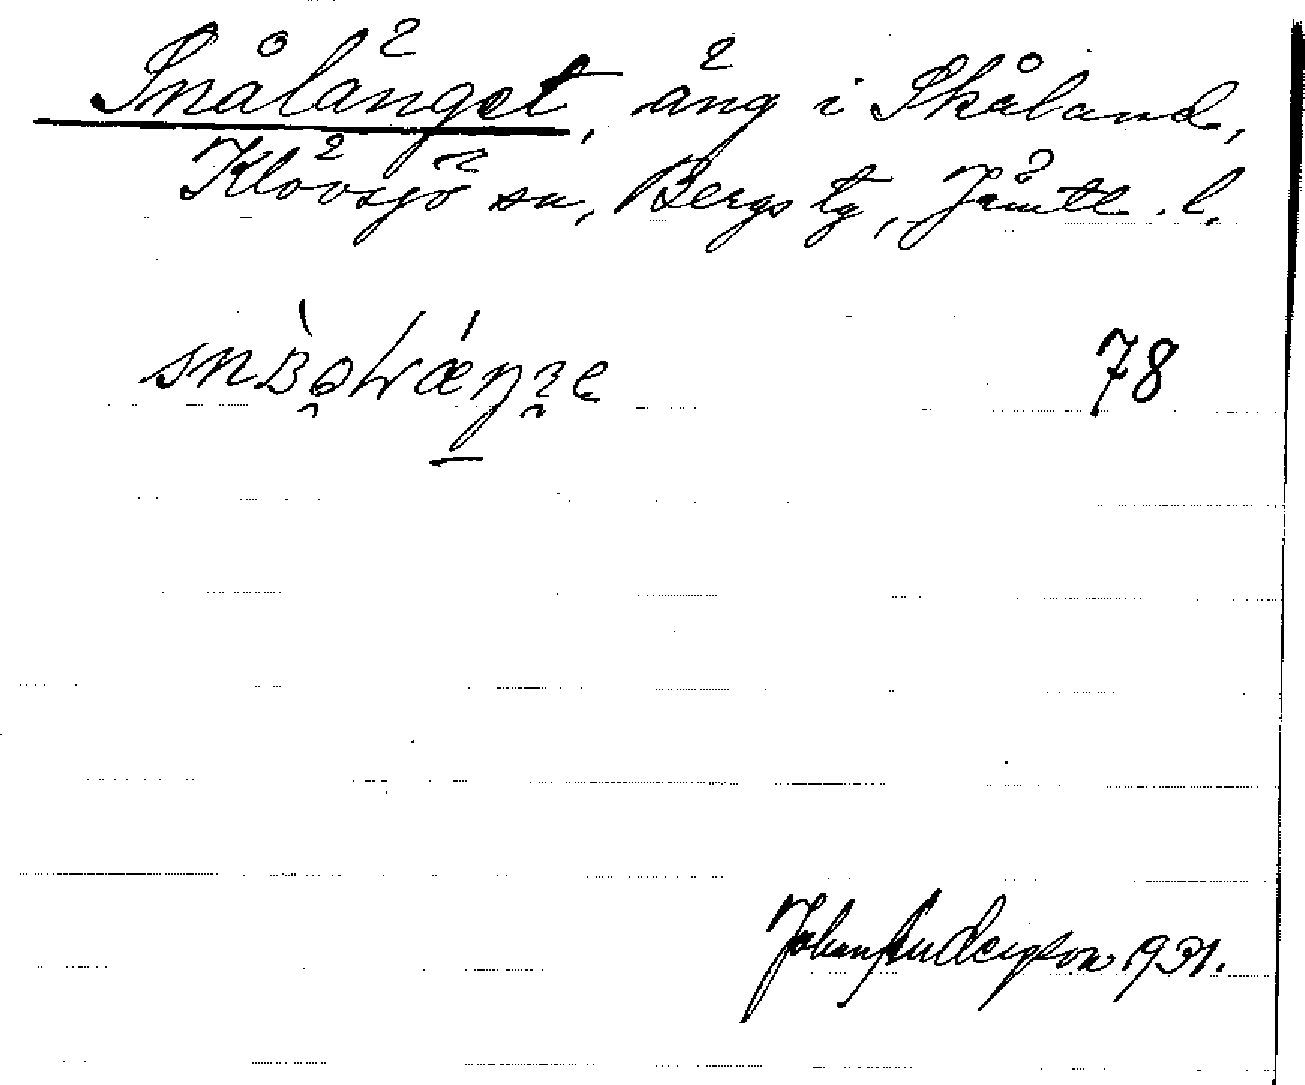 Snålänget, äng i Skåland,
Klövsjö sn, Bergs tg, Jämtl. l.
78
Johan Anderson 1931.